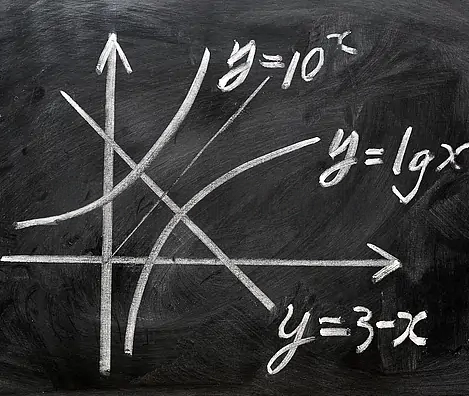 y=10ˣ
y=lgx
y=3-x